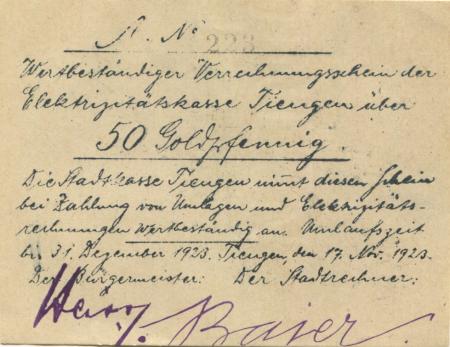 N. No 223
Wertbeständiger Verrechnungsschein der
Elektrizitätskasse Tiengen über
50 Goldpfennig.
Die Stadtkasse Tiengen nimmt diesen Schein
bei Zahlung von Umlagen und Elektrizitäts-
rechnungen wertbeständig an. Umlaufszeit
bis 31. Dezember 1923. Tiengen, den 17. Nov. 1923.
Der Bürgermeister: Der Stadtrechner:
Baier.